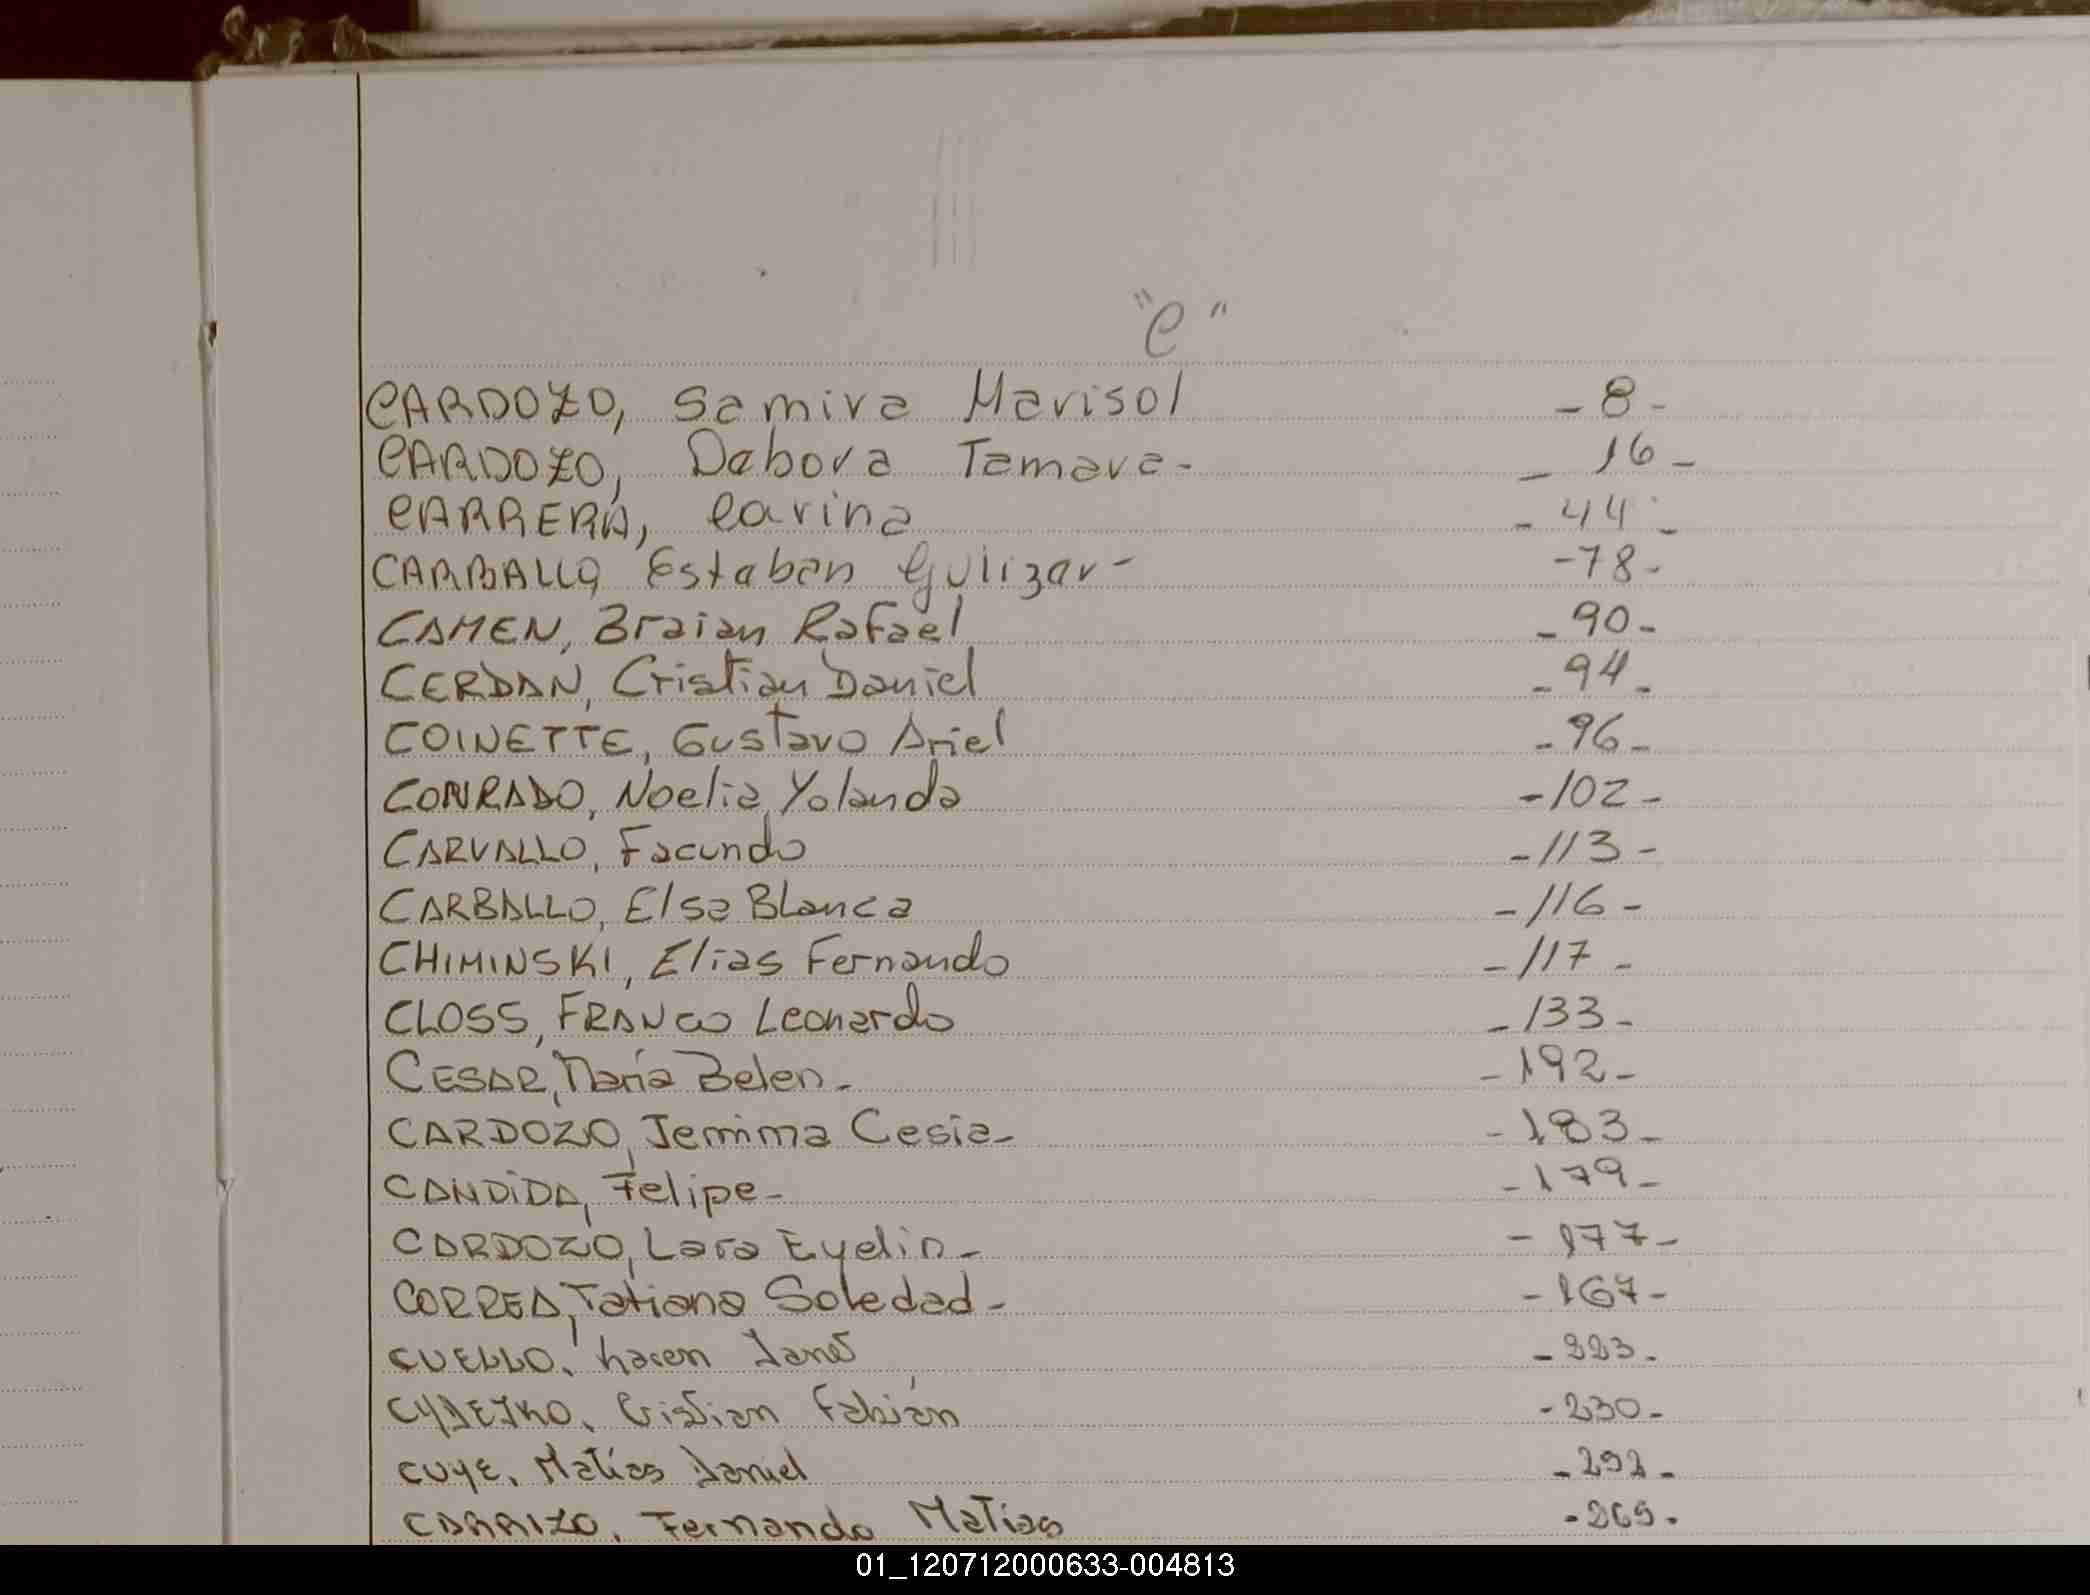 "C"
CARDOZO, Samira Marisol - 8 -
CARDOZO, Debora Tamara - - 16 -
CARRERA, Carina - 44 -
CARBALLO, Estaban Gulizar - - 78 -
CAMEN, Braian Rafael - 90 -
CERDAN, Cristian Daniel - 94 -
COINETTE, Gustavo Ariel - 96 -
CONRADO, Noelia Yolanda - 102 -
CARVALLO, Facundo - 113 -
CARBALLO, Elsa Blanca - 116 -
CHIMINSKI, Elias Fernando - 117 -
CLOSS, FRANCO Leonardo - 133 -
CESAR, Maria Belen - - 192 -
CARDOZO, Jemima Cesia - - 183 -
CANDIDA, Felipe - - 179 -
CARDOZO, Lara Eyelin - - 177 -
CORREA, Tatiana Soledad - - 167 -
CUELLO, - 223 -
Cristian Fabián - 230 -
CUYE, Matias Daniel - 292 -
CARRIZO, Fernando Matias - 269 -
01_120712000633-004813